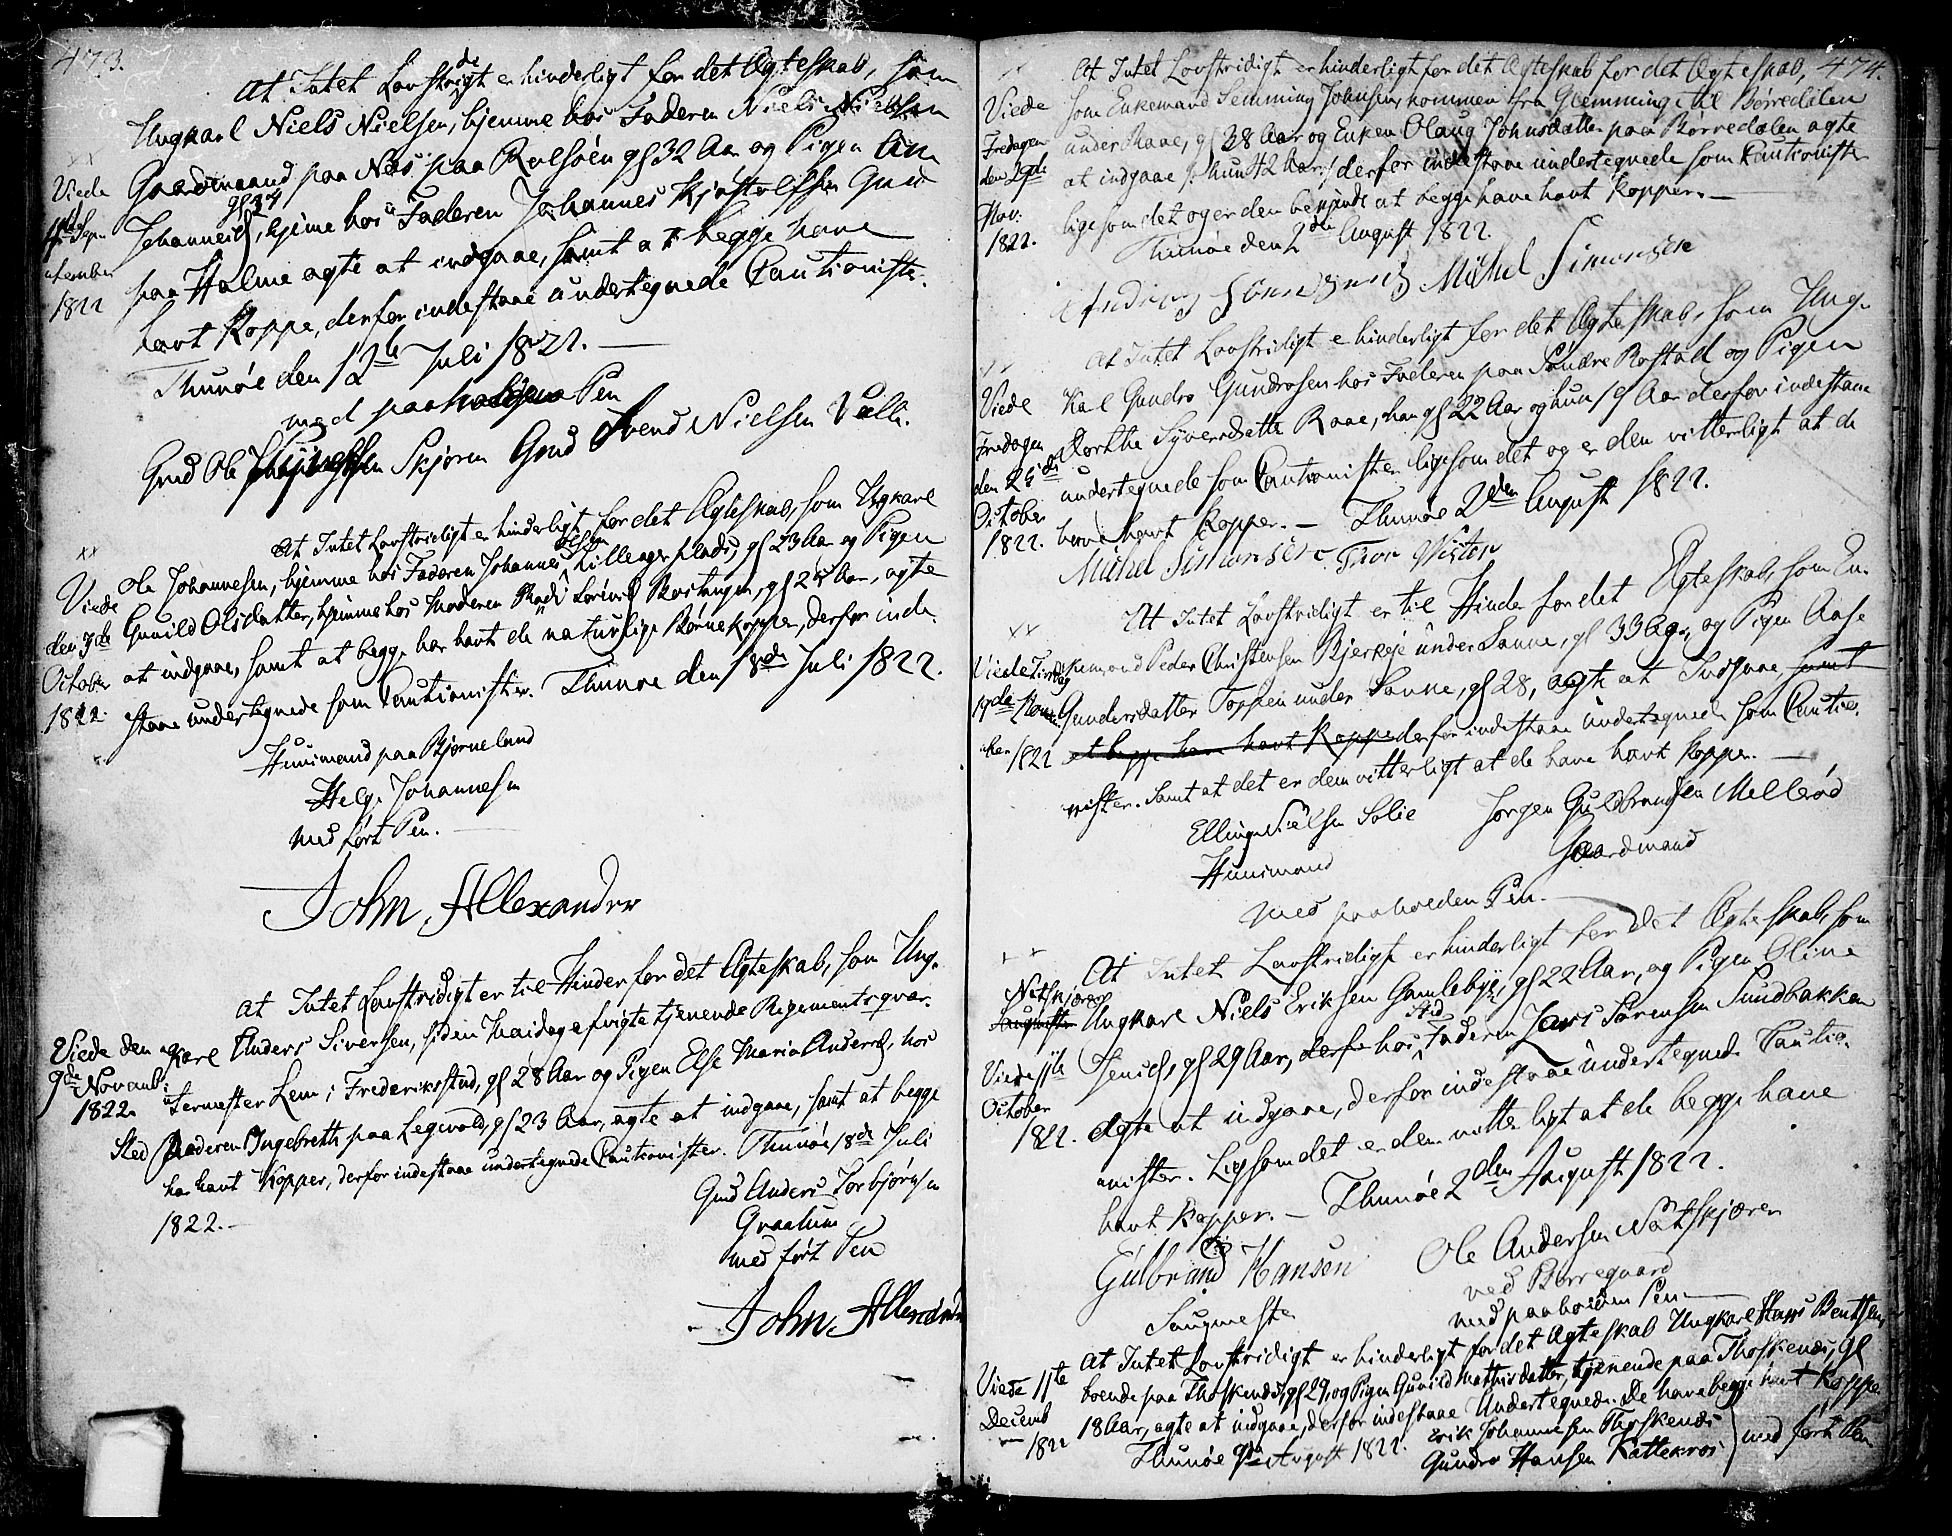 473.
At Intet Lovstridigt er hinderligt for det Ægteskab, som
Ungkarl Niels Nielsen, hjemme hos Faderen Niels Nielsen
Gaardmand paa Næs paa Rolsøen gl 32 Aar og Pigen Ane
Johannesd, gl 24, hjeme hos Faderen Johannes Kjøstolfsen
paa Holme agte at indgaae, samt at begge have
havt Koppe, derfor indestaae undertegnede Cautionister.
Thunøe den 12te Juli 1822. —
med paaholden Pen
Gmd Ole Skjøren Gmd Svend Nielsen Valle.
xx
Viede
11te Sep-
tember
1822
At Intet Lovstridigt er hinderligt for det Ægteskab, som Ungkarl
Ole Johannesen, hjemme hos Faderen Johannes Olsen Lilleagerplads, gl 23 Aar og Pigen
Gunild Olsdatter, hjemme hos Moderen Sørine Kostangen, gl 25 Aar, agte
at indgaae, samt at begge har havt de naturlige Børnekopper, derfor inde-
staae undertegnede som Cautionister. Thunøe den 18de Juli 1822.
xx
Viede
den 3de
October
1822.
Huusmand paa Bjørneland
Helge Johannesen
med ført Pen.
John Allexander
At Intet Lovstridigt er til Hinder for det Ægteskab, som Ung-
karl Anders Sivertsen, siden tjenende Regimentsqvar-
termester Lem i Frederikstad, gl 28 Aar og Pigen Else Maria Andersd, hos
Sted Faderen Ingebreth paa Legvold, gl 23 Aar, agte at indgaae, samt at begge
har havt Kopper, derfor indestaae undertegnede Cautionister. Thunøe 18de Juli
1822.—
Viede den
9de Novemb:
1822.
Gmd Anders Torbjørnsen
Graalum
med ført Pen
John Allexander
474.
At Intet Lovstridigt er hinderligt for det Ægteskab for det Ægteskab,
som Enkemand Semming Johnsen, kommen fra Glemminge til Børredalen
under Raae, gl 38 Aar og Enken Olaug Johnsdatter paa Børredalen agte
at indgaae /: hun 42 Aar :/ derfor indestaae undertegnede som Cautionister
ligesom det og er den bekjendt at begge have havt Kopper. —
Thunøe den 2den August 1822.
Michel Simonsen
Viede
Fredagen
den 29de
Nov:
1822.
At Intet Lovstridigt e hinderligt for det Ægteskab, som Ung-
Karl Gundro Gundrosen hos Faderen paa Søndre Rostad og Pigen
Dorthe Syversdatter Raae, han gl 22 Aar og hun 19 Aar derfor indestaae
undertegnede som Cautionister ligesom det og er den vitterligt at de
have havt Kopper. — Thunøe 2den August 1822.
Michel Simonsen Thor Wister
Viede
Fredagen
den 25de
October
1822.
At Intet Lovstridigt er til Hinder for det Ægteskab, som En-
kemand Peder Christensen Bjerkeje under Sanne, gl 33 Aar, og Pigen Aase
Gundersdatter Toppen under Sanne, gl 28, agte at Indgaae samt
at begge have havt Koppe derfor indestaae undertegnede som Cautio-
nister. Samt at det er dem vitterligt at de have havt Kopper. —
xx
Viede Tirsdag
19de Nov-
ber 1822
Elling Nielsen Solie Jørgen Guldbrandsen Mellerød
Huusmand Gaardmand
med paaholden Pen. —
At Intet Lovstridigt er hinderligt for det Ægteskab, som
Ungkarl Niels Eriksen Gamlebye, gl 22 Aar, og Pigen Oline
Jensd, gl 29 Aar, derfor hos Stid Faderen Lars Sørensen Sundbakken
agte at indgaae, derfor indestaae undertegnede Cautio-
nister. Ligesom det er dem vitterligt at de begge have
havt Kopper. — Thunøe 2den August 1822.
Natskjæren
Saugmester
Viede 11te
October
1822.
Gulbrand Hansen
Saugmester
Ole Andersen Natskjæren
ved Borregaard
med paaholden Pen —
At Intet Lovstridigt er hinderligt for det Ægteskab Ungkarl Hans Bentsen,
boende paa Thoskends, gl 29, og Pigen Gunild Mathisdatter, tjenende paa Thoskends, gl
18 Aar, agte at indgaae, derfor indestaae Undertegnede. De have begge havt Kopper
Thunøe 9de August 1822.
Erik Johannesen Thoskends
Gundro Hansen Kattekroe } med ført Pen
Viede 11te
Decemb
1822